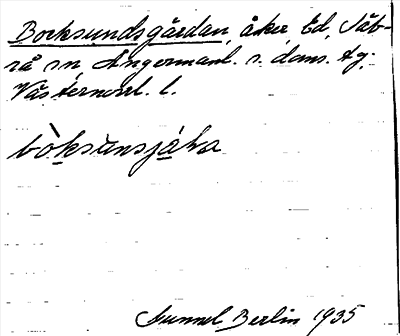 Bocksundsgårdan, åker, Ed, Säb-
rå sn Ångermanl. s. doms. tg.
Västernorrl. l.
bòksùnsjáḷa
Gunnel Berlin 1935